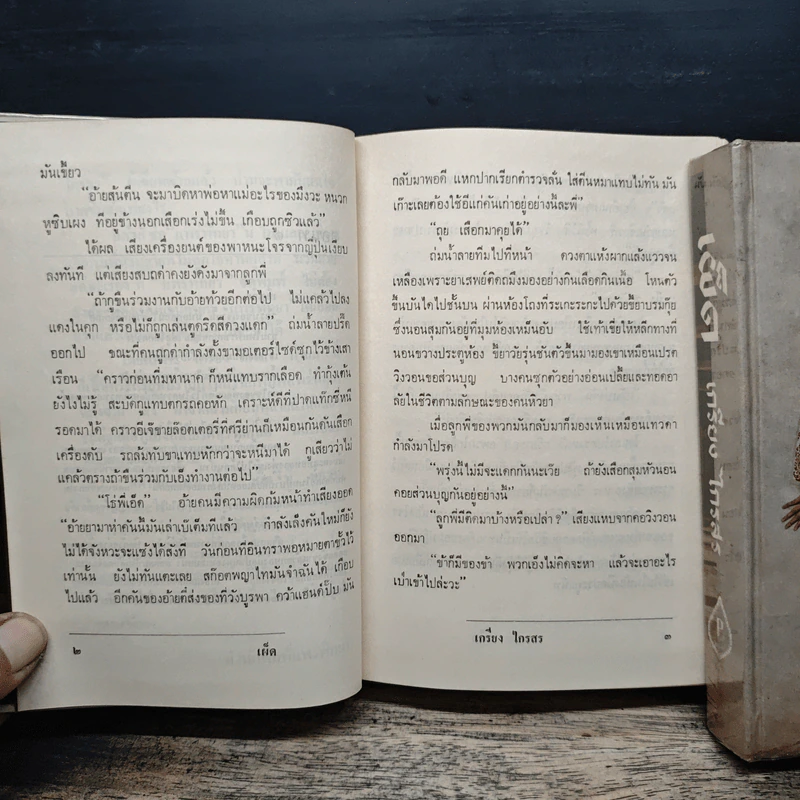 มันเขี้ยว
“อ้ายสันตีน จะมาบิดหาพ่อหาแม่อะไรของมึงวะ หนวก
หูชิบเผง ที่อยู่ข้างนอกเสือกเร่งไม่ขึ้น เกือบถูกซิวแล้ว”
ได้ผล เสียงเครื่องยนต์ของพาหนะโจรจากญี่ปุ่นเงียบ
ลงทันที แต่เสียงสบถด่าคงยังดังมาจากลูกพี่
“ถ้ากูขืนร่วมงานกับอ้ายห้วยอีกต่อไป ไม่แคล้วไปลง
แดงในคุก หรือไม่ก็ถูกเล่นดูคริดสีดวงแดก” ถ่มน้ำลายปรี๊ด
ออกไป ขณะที่คนถูกด่ากำลังตั้งขามอเตอร์ไซด์ซุกไว้ข้างเสา
เรือน “คราวก่อนที่มหานาค ก็หนีแทบรากเลือด ทำกุ้งเต้น
ยังไงไม่รู้ สะบัดกูแทบตกรถคอหัก เคราะห์ดีที่ปาดแท๊กซี่หนี
รอดมาได้ คราวอีเจ๊ขายล๊อตเตอรี่ที่ศรีย่านก็เหมือนกันดันเสือก
เครื่องดับ รถล้มทับขาแทบหักกว่าจะหนีมาได้ กูเสียวว่าไม่
แคล้วตรางถ้าขืนร่วมกับเอ็งทำงานต่อไป”
“โธ่พี่เอ็ด” อ้ายคนมีความผิดก้มหน้าทำเสียงออด
“อ้ายยามาห่าคันนี้มันเล่าเบ๊เต็มทีแล้ว กำลังเล็งคันใหม่ก็ยัง
ไม่ได้จังหวะจะแซ้งได้สักที วันก่อนที่อินทราพอหมายตาขั้วไว้
เท่านั้น ยังไม่ทันแตะเลย สก๊อตพญาไทมันจำฉันได้ เกือบ
ไปแล้ว อีกคันของอ้ายตี๋ส่งของที่วังบูรพา คว้าแฮนด์ปั๊บ มัน
๒ เผ็ด
กลับมาพอดี แหกปากเรียกตำรวจลั่น ใส่ตีนหมาแทบไม่ทัน มัน
ก๊าะเลยต้องใช้อีแก่คันเก่าอยู่อย่างนี้ละพี่”
“ถุย เสือกมาคุยได้”
ถ่มน้ำลายทีมไปที่หน้า ดวงตาแห้งผากแล้งแววจน
เหลืองเพราะยาเสพย์ติดถมึงมองอย่างกินเลือดกินเนื้อ โหนตัว
ขึ้นบันไดไปชั้นบน ผ่านห้องโถงที่ระเกะระกะไปด้วยขี้ยาบรมกุ๊ย
ซึ่งนอนสุมกันอยู่ที่มุมห้องเหม็นอับ ใช้เท้าเขี่ยให้หลีกทางที่
นอนขวางประตูห้อง ขี้ยาวัยรุ่นชันตัวขึ้นมามองเขาเหมือนเปรต
วิงวอนขอส่วนบุญ บางคนซุกตัวอย่างอ่อนเปลี้ยและทอดอา
ลัยในชีวิตตามลักษณะของคนหิวยา
เมื่อลูกพี่ของพวกมันกลับมาก็มองเห็นเหมือนเทวดา
กำลังมาโปรด
“พรุ่งนี้ไม่มีจะแดกกันนะเว๊ย ถ้ายังเสือกสุมหัวนอน
คอยส่วนบุญกันอยู่อย่างนี้”
“ลูกพี่มีติดมาบ้างหรือเปล่า ?” เสียงแหบจากคอวิงวอน
ออกมา
“ข้าก็มีของข้า พวกเอ็งไม่คิดจะหา แล้วจะเอาอะไร
เบ่าเข้าไปล่ะวะ”
เกรียง ไกรสร ๓
เผ็ด เกรียง ไกรสร